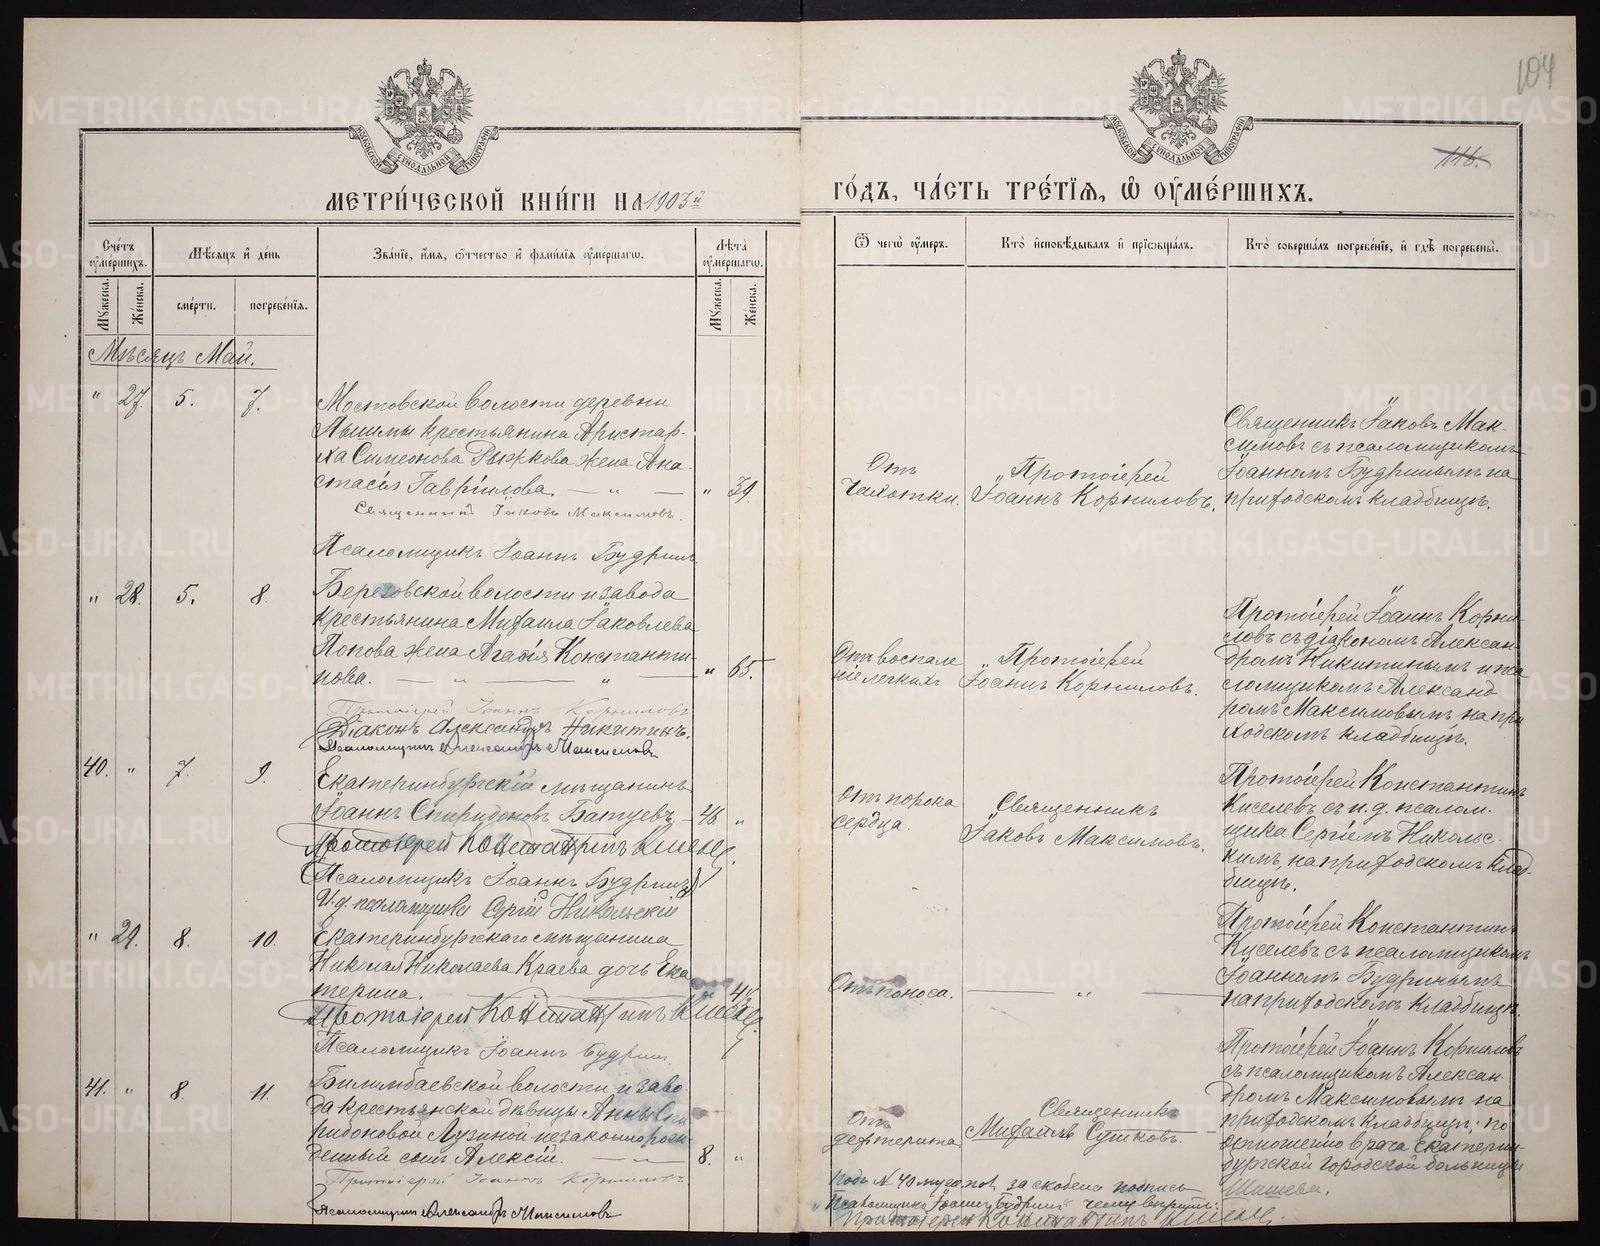 104
116.
МЕТРИ́ЧЕСКОЙ КНИ́ГИ НА 1903й
ГО́ДЪ, ЧА́СТЬ ТРЕ́ТІѦ, Ѡ ОУМЕ́РШИХЪ.
МОСКОВСКОЙ СѴНОДАЛЬНОЙ ТИПОГРАФІИ
МОСКОВСКОЙ СѴНОДАЛЬНОЙ ТИПОГРАФІИ
Сче́тъ оуме́ршихъ.
Мѣсѧцъ и день
Зва́ніе, и́мѧ, ѻ́тчество и фами́лїѧ оуме́ршагѡ.
Лѣта оуме́ршагѡ.
Ѿ чегѡ̀ оу́меръ.
Кто̀ исповѣ́дывалъ и прїѡбща́лъ.
Кто̀ соверша́лъ погребе́нїе, и гдѣ̀ погребены̀.
Мужеска.
Женска.
сме́рти.
погребе́нїѧ.
Мужеска.
Женска.
Мѣсяцъ Май.
" 27. 5. 7.
Мостовской волости деревни
Пышмы крестьянина Аристар-
ха Симеонова Рыжкова жена Ана-
стасія Гавріилова. — " — " 39.
Священникъ Іаковъ Максимовъ.
Псаломщикъ Іоаннъ Будринъ
Отъ
чахотки.
Протоіерей
Іоаннъ Корниловъ.
Священникъ Іаковъ Мак-
симовъ съ псаломщикомъ
Іоанномъ Будринымъ на
приходскомъ кладбищѣ.
" 28. 5. 8.
Березовской волости и завода
крестьянина Михаила Іаковлева
Попова жена Агафія Константи-
нова. — " — " — " 65.
Протоіерей Іоаннъ Корниловъ
Діаконъ Александръ Никитинъ.
Псаломщикъ Александръ Максимовъ
Отъ воспале
ніе легкихъ
Протоіерей
Іоаннъ Корниловъ.
Протоіерей Іоаннъ Корни-
ловъ съ діакономъ Алексан-
дромъ Никитинымъ и пса
ломщикомъ Александ
ромъ Максимовымъ на при
ходскомъ кладбищѣ.
40. " 7. 9.
Екатеринбургскій мѣщанинъ
Іоаннъ Спиридоновъ Батуевъ. — 46. "
Протоіерей Константинъ Киселевъ.
Псаломщикъ Іоаннъ Будринъ
И. д. псаломщика Сергій Никольскій
Отъ порока
сердца.
Священникъ
Іаковъ Максимовъ.
Протоіерей Константинъ
Киселевъ съ и. д. псалом-
щика Сергіемъ Николь-
кимъ, на приходскомъ клад-
бищѣ.
" 29. 8. 10.
Екатеринбургскаго мѣщанина
Николая Николаева Краева дочь Ека
терина.
Протоіерей Константинъ Киселевъ.
Псаломщикъ Іоаннъ Будринъ
Отъ поноса.
— " —
Протоіерей Константинъ
Киселевъ съ псаломщикомъ
Іоанномъ Будринымъ
на приходскомъ кладбищѣ.
41. " 8. 11.
Билимбаевской волости и заво-
да крестьянской дѣвицы Анны Спи
ридоновой Лузиной незаконнорож-
денный сынъ Алексій. — " — 8. "
Протоіерей Іоаннъ Корниловъ
Псаломщикъ Александръ Максимовъ
Отъ
дефтерита
Священникъ
Михаилъ Сушковъ.
Протоіерей Іоаннъ Корниловъ
съ псаломщикомъ Алексан
дромъ Максимовымъ на
приходскомъ кладбищѣ; по
отношенію врача Екатерин-
бургской городской больницы
Подъ № 40 муж. пол. заскоблена подпись
"Псаломщикъ Іоаннъ Будринъ" чему вѣрить:
Протоіерей Константинъ Киселевъ.